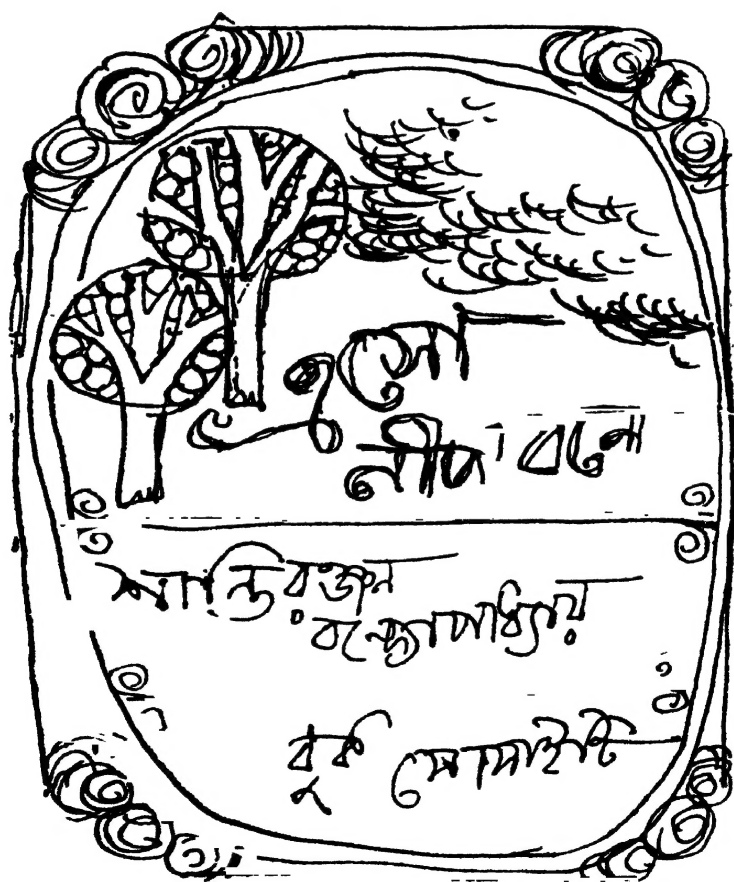 এসো
নীপ বনে
শান্তিরঞ্জন
বন্দ্যোপাধ্যায়
বুক সোসাইটি